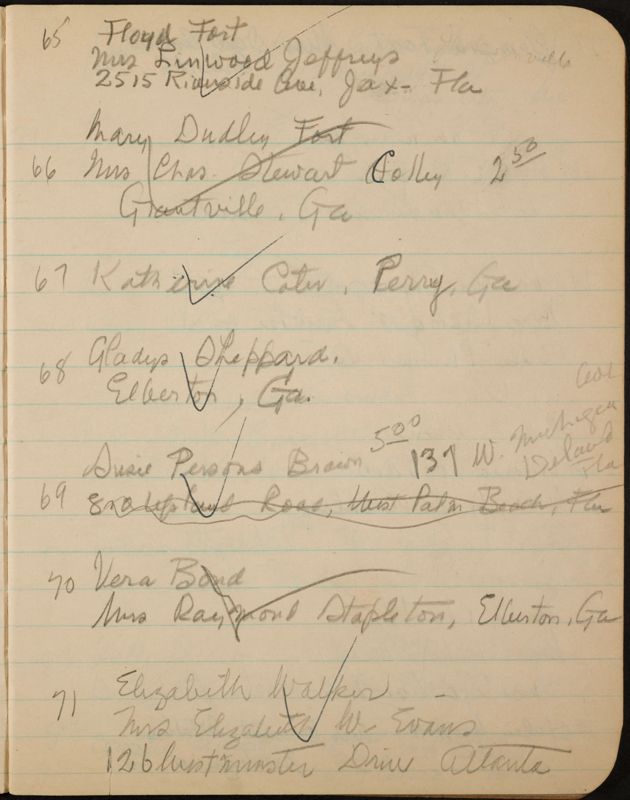 65 Floyd Fort
Mrs Linwood Jeffreys
2515 Riverside Ave, Jax- Fla
Mary Dudley Fort
66 Mrs Chas. Stewart Colley 2 50
Grantville, Ga
67 Katherine Cater, Perry, Ga
68 Gladys Sheppard,
Elberton, Ga.
Susie Persons Brown 5 00 137 W. Michigan Ave
Deland Fla
69 Road, West Palm Beach, Fla
70 Vera Bond
Mrs Raymond Stapleton, Elberton, Ga
71 Elizabeth Walker -
Mrs Elizabeth W. Evans
126 Westminster Drive Atlanta